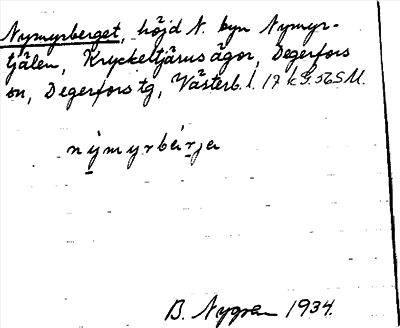 Nymyrberget, höjd N. byn Nymyr-
tjälen, Kryckeltjärns ägor, Degerfors
sn, Degerfors tg, Västerb. l. 17 k S. 56 S M.
nymyrbärja
B. Nygren 1934.